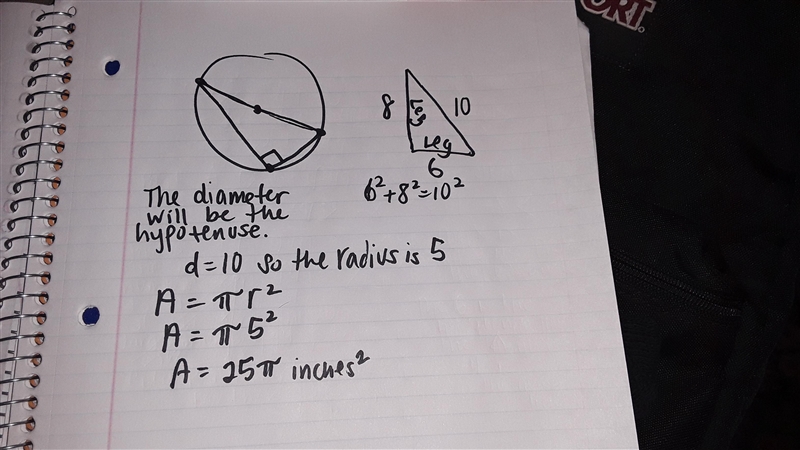 ORT
8
leg
10
leg
6
6²+8²=10²
The diameter
will be the
hypotenuse.
d=10 so the radius is 5
A = πr²
A = π5²
A = 25π inches²